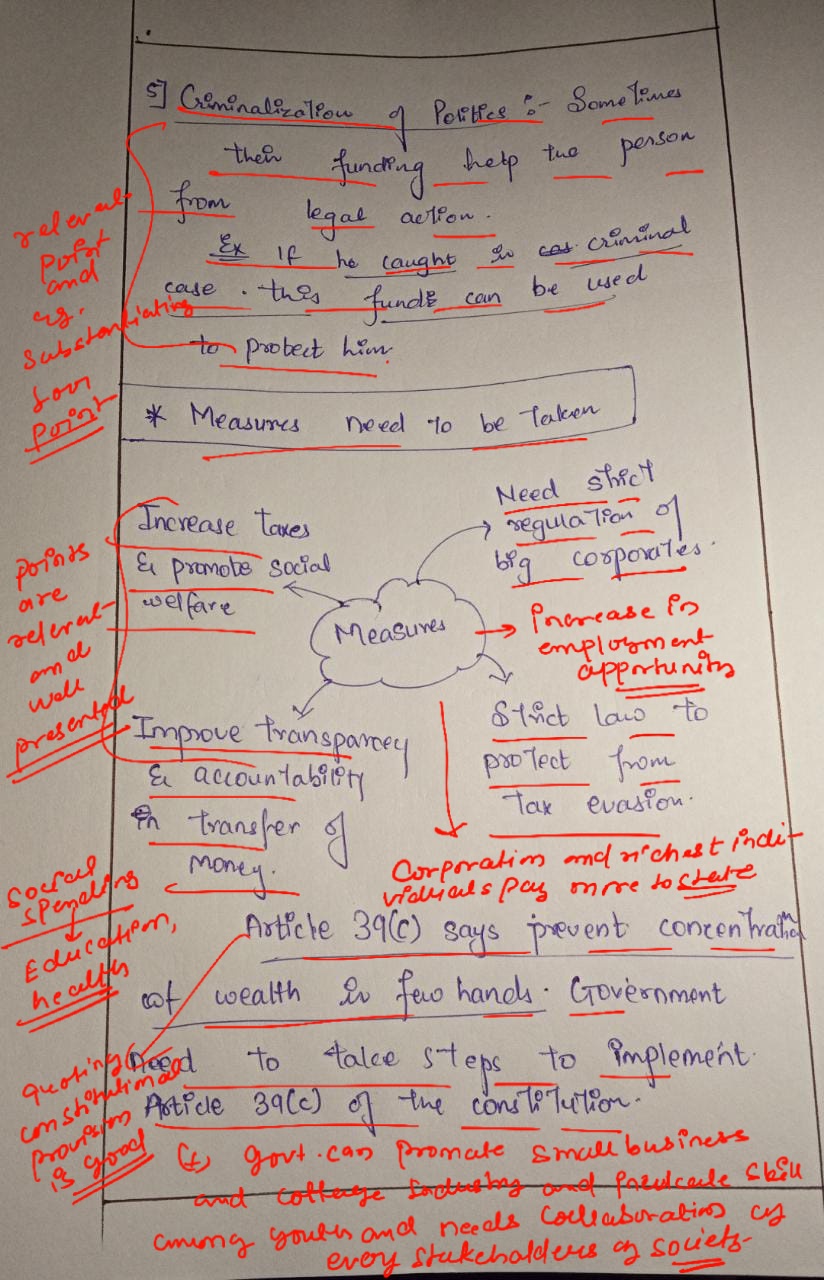 5] Criminalization of Politics :- Sometimes
their funding help the person
from legal action.
Ex If he caught in cas criminal
case. this funds can be used
to protect him.
relevant
point
and
eg.
substantiating
your
point
* Measures need to be taken
Increase taxes
& promote social
welfare
Need strict
regulation of
big corporates.
Measures
→ Increase in
employment
opportunity
points
are
relevant
and
well
presented
Improve transparcey
& accountability
in transfer of
money.
Strict law to
protect from
tax evasion.
Corporation and richest indi-
viduals pay more to state
social
spending
Education,
health
Article 39(c) says prevent concentration
of wealth in few hands. Government
need to take steps to implement
Article 39(c) of the constitution.
quoting
constitutional
provision
is good
(+) govt. can promote small business
and cottage industry and inculcate skill
among youth and needs collaboration of
every stakeholders of society.